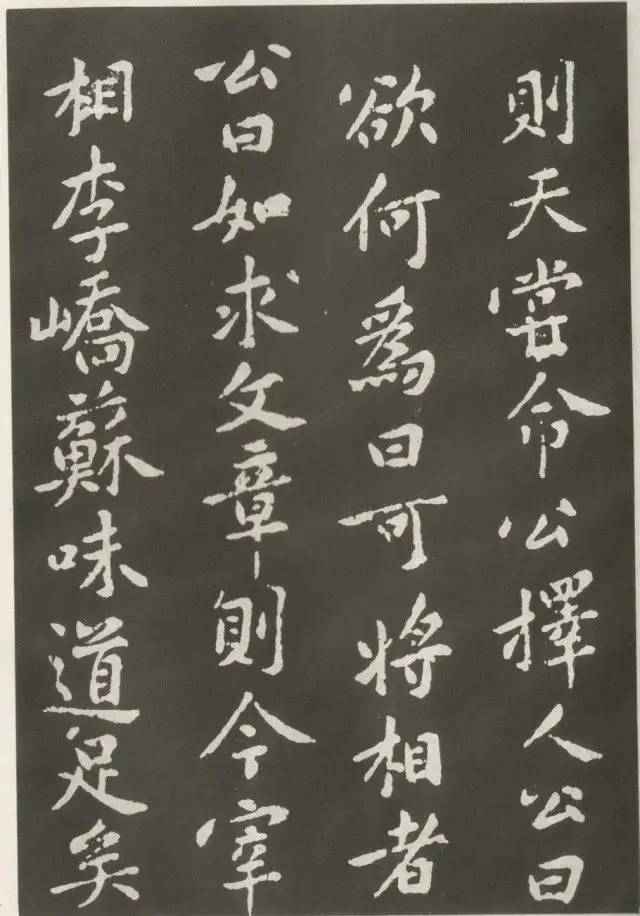 則天嘗命公擇人公曰
欲何爲曰可將相者
公曰如求文章則今宰
相李嶠蘇味道足矣